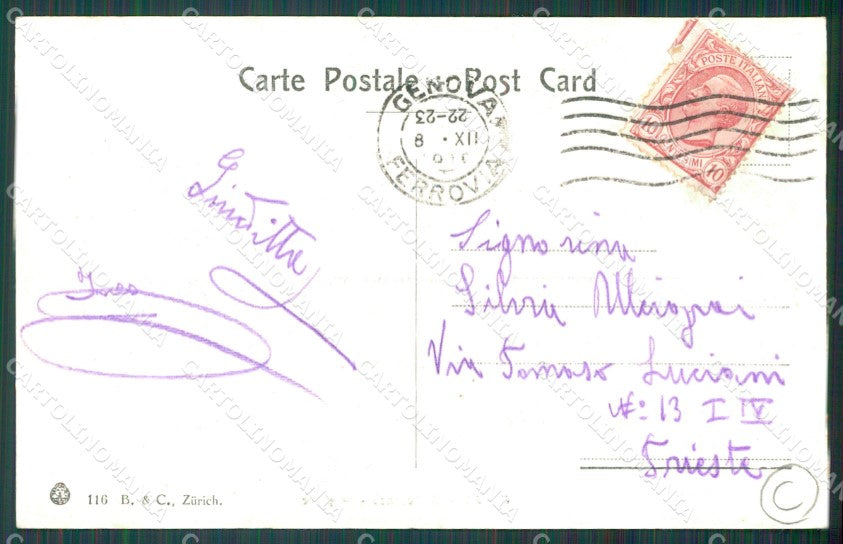 Carte Postale - Post Card
GENOVA
22-23
8 · IX
FERROVIA
POSTE ITALIANE
10 CENTESIMI 10
Giuditta
Signorina
Silvia
Via Tomaso Luciani
No: 13 I IV
Trieste
116 B. & C., Zürich.
C
CARTOLINOMANIA